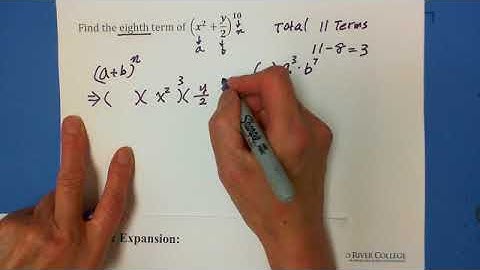 Find the eighth term of (x² + y/2)¹⁰
a b n
Total 11 Terms
11-8=3
(a+b)ⁿ
( ) a³ · b⁷
⇒ ( )( x² )³( y/2
Expansion:
RIVER COLLEGE